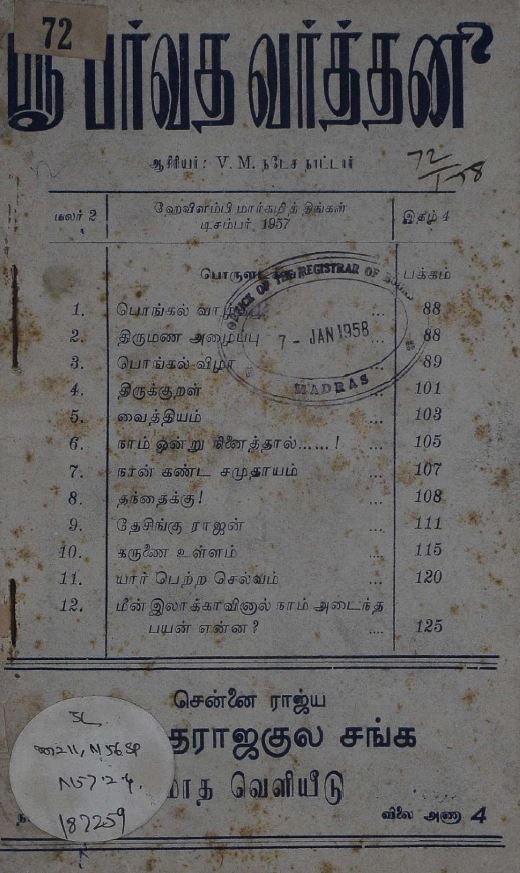 72
ஸ்ரீ பர்வத வர்த்தனி
ஆசிரியர்: V. M. நடேச நாட்டார்
72
மலர் 2 ஹேவிளம்பி மார்கழித் திங்கள் இதழ் 4
டிசம்பர், 1957
பக்கம்
OFFICE OF THE REGISTRAR OF
7 - JAN 1958
MADRAS
1. பொங்கல் ... 88
2. திருமண அழைப்பு ... 88
3. பொங்கல் விழா 89
4. திருக்குறள் ... 101
5. வைத்தியம் ... 103
6. நாம் ஒன்று நினைத்தால்......! ... 105
7. நான் கண்ட சமுதாயம் ... 107
8. தந்தைக்கு! ... 108
9. தேசிங்கு ராஜன் ... 111
10. கருணை உள்ளம் ... 115
11. யார் பெற்ற செல்வம் ... 120
12. மீன் இலாக்காவினால் நாம் அடைந்த
பயன் என்ன? .... 125
சென்னை ராஜ்ய
தராஜகுல சங்க
மாத வெளியீடு
விலை அணா 4
187259